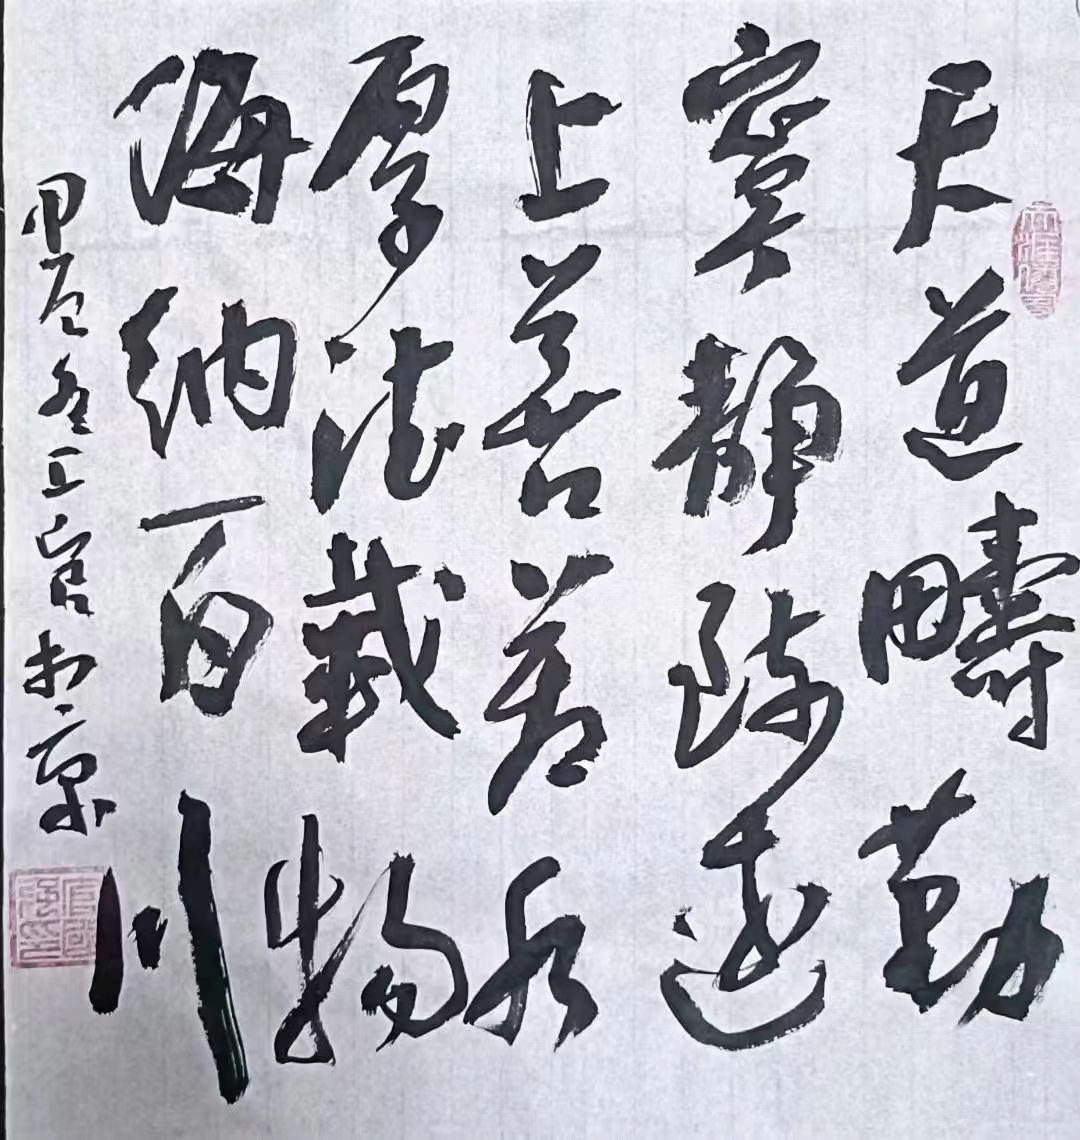 天道畴勤
宁静致远
上善若水
厚德载物
海纳百川
甲辰冬王宫书于京